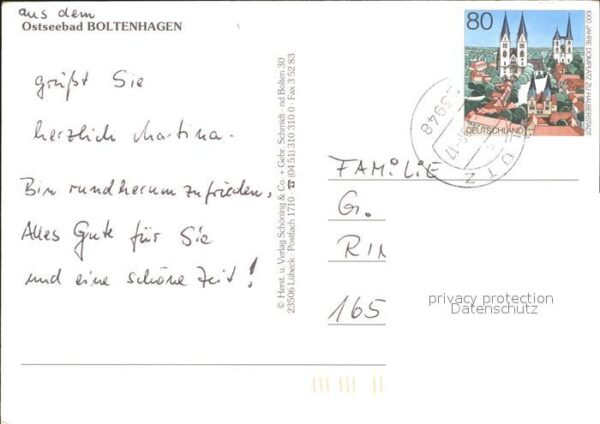 aus dem
Ostseebad BOLTENHAGEN
grüßt Sie
herzlich Martina.
Bin rundherum zufrieden,
Alles Gute für Sie
und eine schöne Zeit!
© Herst. u. Verlag Schöning & Co. + Gebr. Schmidt · nd Bollen 30
23506 Lübeck · Postfach 1710 ☎ (04 51) 310 310 0 · Fax 3 52 83
80
1000 JAHRE DOMPLATZ ZU HALBERSTADT
DEUTSCHLAND
23948
-17
ÜTZ
FAMILIE
G.
RI
165
privacy protection
Datenschutz